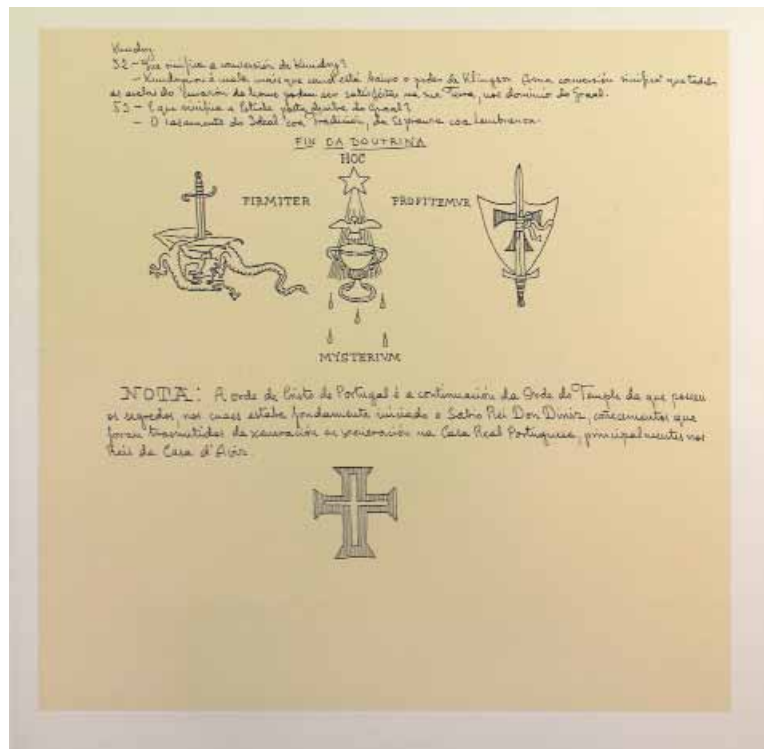 Kundry
52 - Que sinifica a conversión de Kundry?
- Kundry é mala mais que cand está baixo o poder de Klingsor. A sua conversión sinifica que todos
os do Corazón do home poden ser satisfeitos na sua Terra, nos dominios do Graal.
53 - E que sinifica o do Graal?
- O casamento do Ideal coa Tradición, da Espranza coa Lembranza.
FIN DA DOUTRINA
HOC
FIRMITER
PROFITEMVR
MYSTERIVM
NOTA: A orde de Cristo de Portugal é a continuación da Orde do Temple da que posseu
os segredos, nos cuaes estaba fondamente iniciado o Sabio Rei Don Diniz, coñecementos que
foran trasmitidos de xeneración en xeneración na Casa Real Portuguesa, principalmentes nos
Reis da Casa d'Aviz.